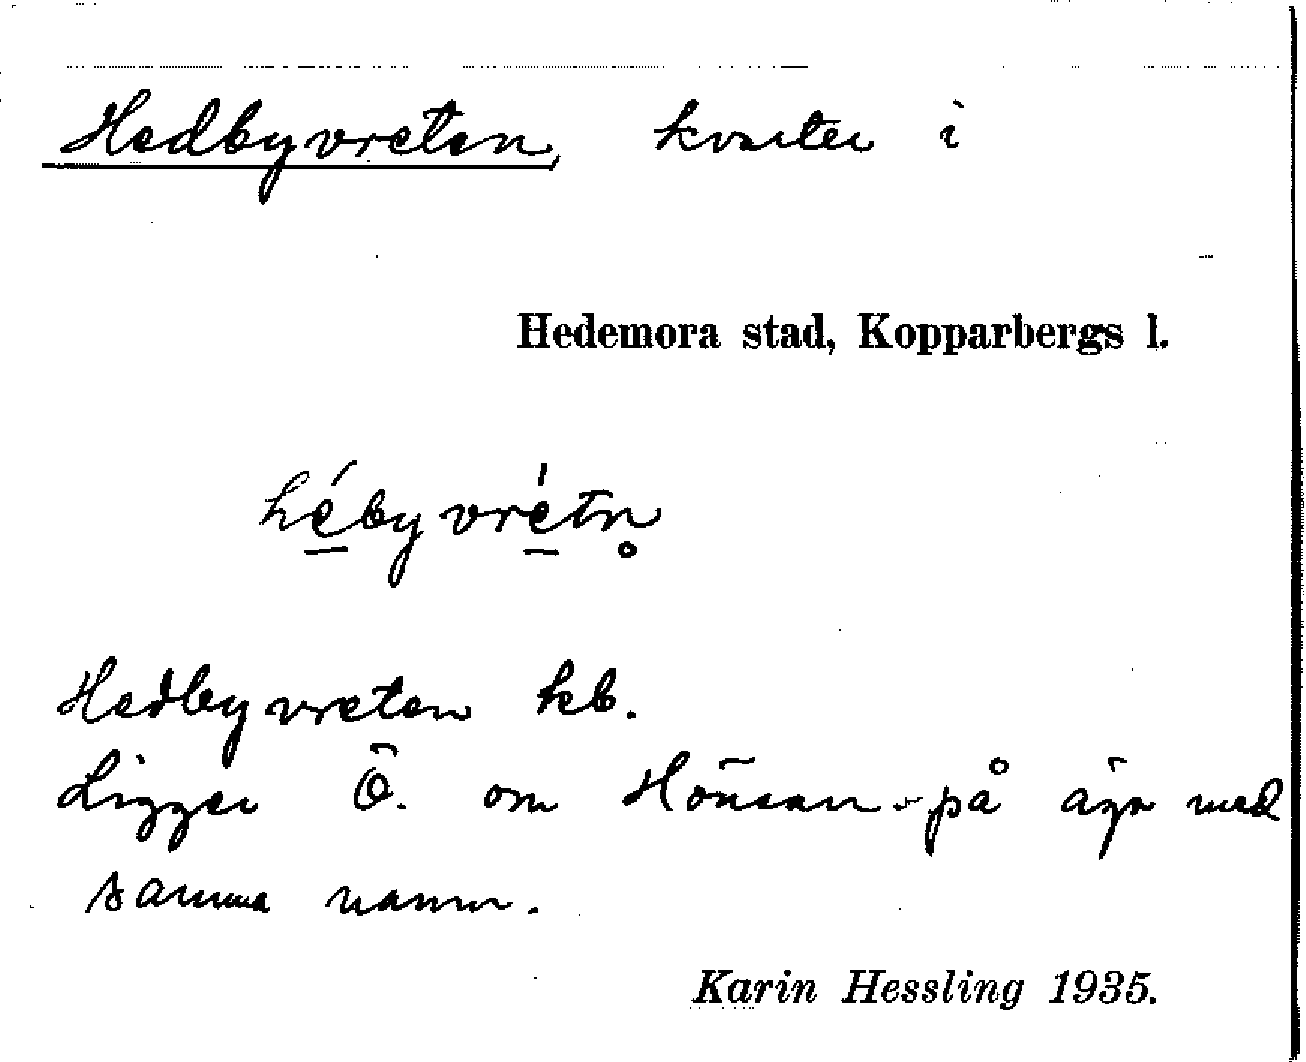 Hedbyvreten, kvarter i
Hedemora stad, Kopparbergs l.
hé̱byvré̱tn̥
Hedbyvreten kb.
Ligger Ö. om Hönsan på äga med
samma namn.
Karin Hessling 1935.